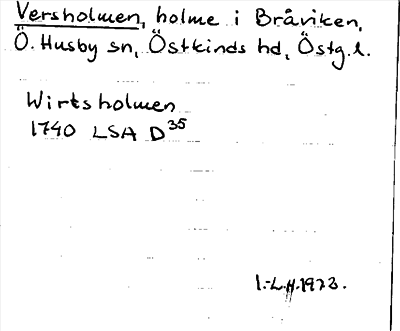 Versholmen, holme i Bråviken,
Ö. Husby sn, Östkinds hd, Östg. l.
Wirtsholmen
1740 LSA D35
I.-L.H. 1973.